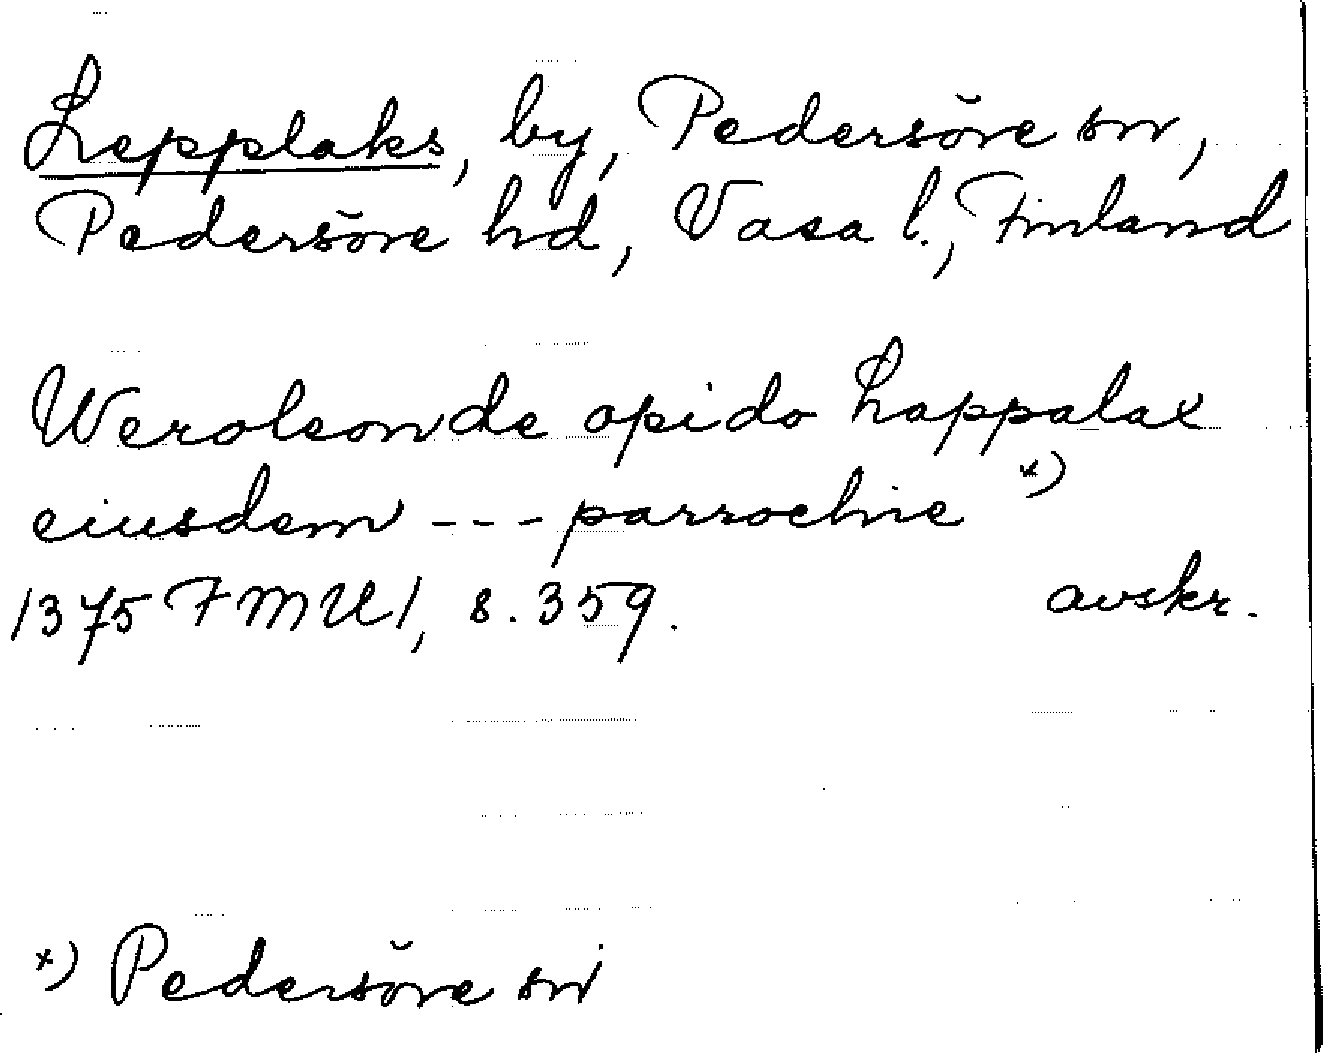 Lepplaks, by, Pedersöre sn,
Pedersöre hd, Vasa l., Finland
Werolson de opido Lappalax
eiusdem --- parrochie x)
1375 FMU 1, s. 359. avskr.
x) Pedersöre sn